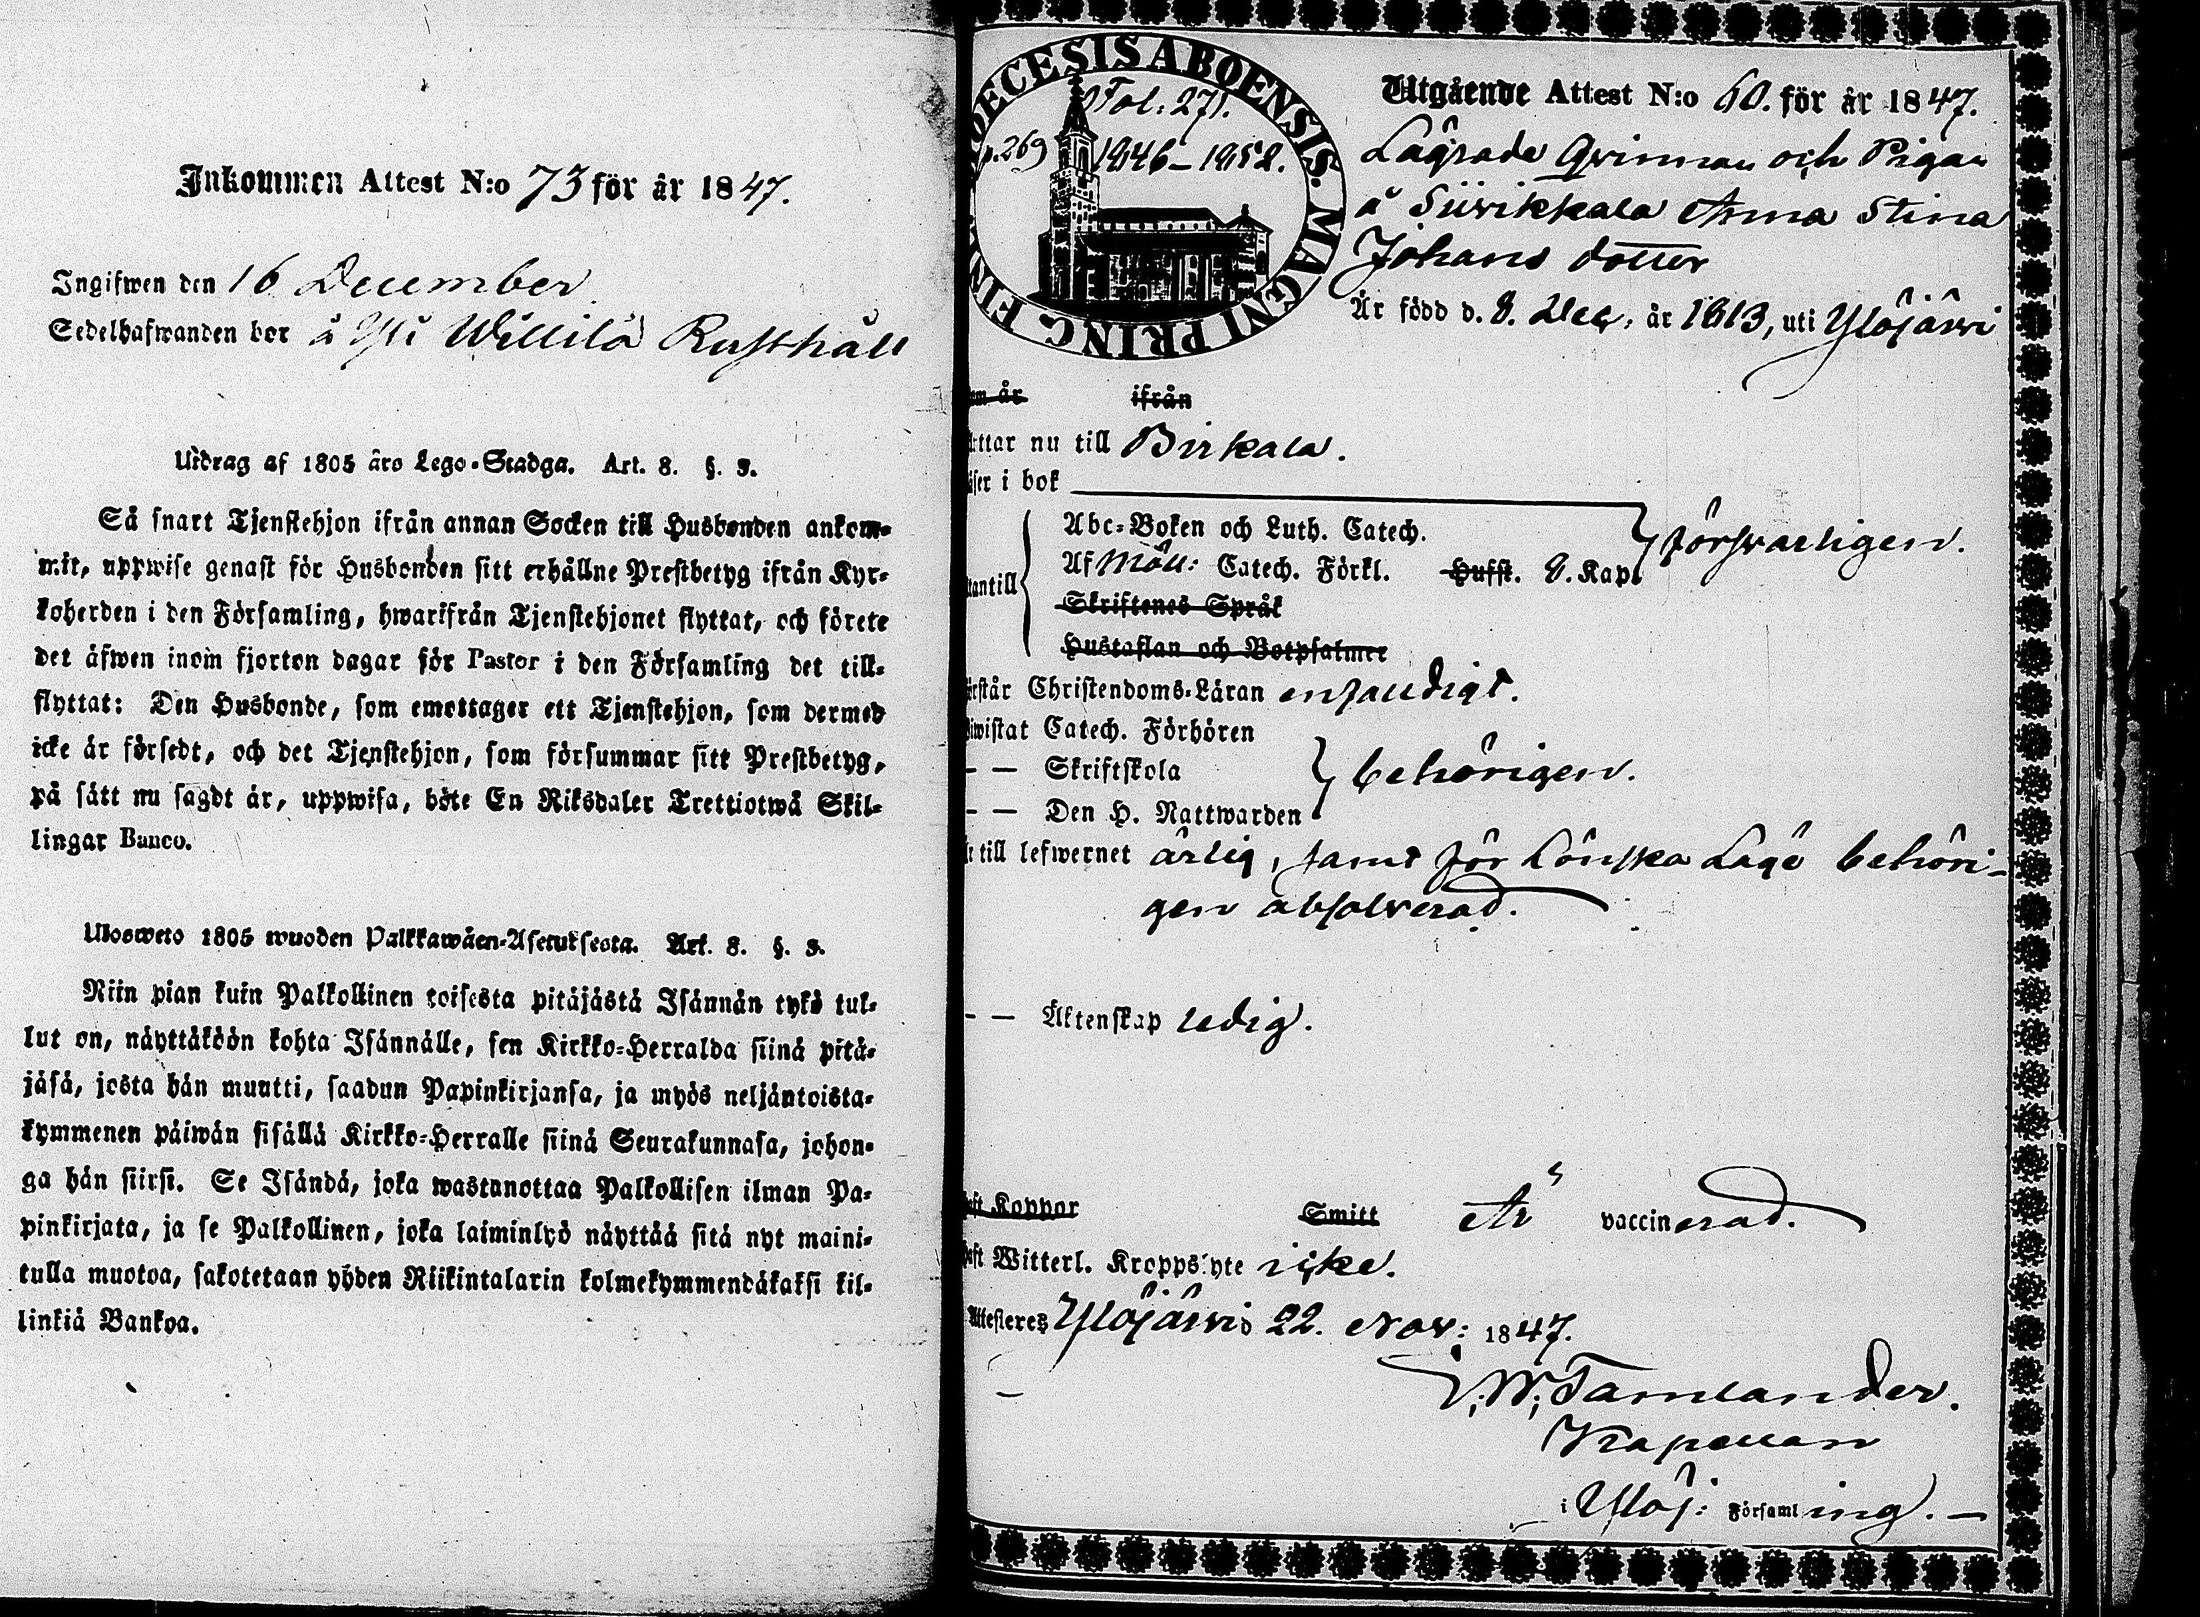 Inkommen Attest N:o 73 för år 1847.
Ingifwen den 16 December.
Sedelhafwanden bor å Yli Willilä Rusthåll
Utdrag af 1805 års Lego-Stadga. Art. 8. §. 3.
Så snart Tjenstehjon ifrån annan Socken till Husbonden ankom-
mit, uppwise genast för Husbonden sitt erhållne Prestbetyg ifrån Kyr-
koherden i den Församling, hwarifrån Tjenstehjonet flyttat, och förete
det äfwen inom fjorton dagar för Pastor i den Församling det till-
flyttat: Den Husbonde, som emottager ett Tjenstehjon, som dermed
icke är försedt, och det Tjenstehjon, som försummar sitt Prestbetyg,
på sätt nu sagdt är, uppwisa, böte En Riksdaler Trettiotwå Skil-
lingar Banco.
Ulosweto 1805 wuoden Palkkawäen-Asetuksesta. Art. 8. §. 3.
Niin pian kuin Palkollinen toisesta pitäjästä Isännän tykö tul-
lut on, näyttäköön kohta Isännälle, sen Kirkko-Herralda siinä pitä-
jäsä, josta hän muutti, saadun Papinkirjansa, ja myös neljäntoista-
kymmenen päiwän sisällä Kirkko-Herralle siinä Seurakunnasa, johon-
ga hän siirsi. Se Isändä, joka wastanottaa Palkollisen ilman Pa-
pinkirjata, ja se Palkollinen, joka laiminlyö näyttää sitä nyt maini-
tulla muotoa, sakotetaan yhden Riikintalarin kolmekymmendäkaksi kil-
linkiä Bankoa.
DIOECESIS ABOENSIS. MAGNI PRINC. FINL.
Fol: 271.
p. 269 1846–1852.
Utgående Attest N:o 60. för år 1847.
Lägrade Qvinnan och Pigan
å Siivikkala Anna Stina
Johans dotter
Är född d. 8. Dec, år 1813, uti Ylöjärvi
om år ifrån
ttar nu till Birkala.
äser i bok
Abc-Boken och Luth. Catech.
Af Möll: Catech. Förkl. Hufst. 8. Kap. försvarligen.
tantill
Skriftenes Språk
Hustaflan och Botpsalmer
rstår Christendoms-Läran enfaldigt.
iwistat Catech. Förhören
– – Skriftskola behörigen.
– – Den H. Nattwarden
r till lefwernet ärlig, samt för Lönska Läge behöri-
gen absolverad.
– – Äktenskap ledig.
aft Koppor Smitt Är vaccinerad.
aft Witterl. Kroppslyte icke.
Attesteres Ylöjärvi d 22. Nov: 1847.
Tamlander.
Kapellan
i Ylöj: Församling. –